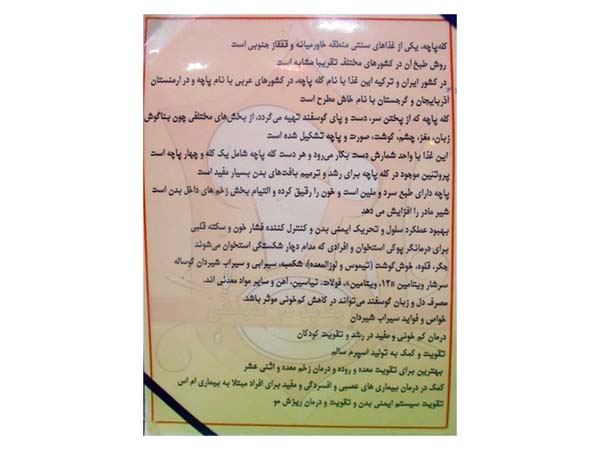 کله‌پاچه، یکی از غذاهای سنتی منطقه خاورمیانه و قفقاز جنوبی است
روش طبخ آن در کشورهای مختلف تقریبا مشابه است
در کشور ایران و ترکیه این غذا با نام کله پاچه، در کشورهای عربی با نام پاچه و در ارمنستان
آذربایجان و گرجستان با نام خاش مطرح است
کله پاچه که از پختن سر، دست و پای گوسفند تهیه می‌گردد، از بخش‌های مختلفی چون بناگوش
زبان، مغز، چشم، گوشت، صورت و پاچه تشکیل شده است
این غذا با واحد شمارش دست بکار می‌رود و هر دست کله پاچه شامل یک کله و چهار پاچه است
پروتئین موجود در کله پاچه برای رشد و ترمیم بافت‌های بدن بسیار مفید است
پاچه دارای طبع سرد و ملین است و خون را رقیق کرده و التیام بخش زخم های داخل بدن است
شیر مادر را افزایش می دهد
بهبود عملکرد سلول و تحریک ایمنی بدن و کنترل کننده فشار خون و سکته قلبی
برای درمانگر پوکی استخوان و افرادی که مدام دچار شکستگی استخوان می‌شوند
جگر، قلوه، خوش‌گوشت (تیموس و لوزالمعده)، شکمبه، سیرابی و سیراب شیردان گوساله
سرشار ویتامین B۱۲، ویتامین، فولات، نیاسین، آهن و سایر مواد معدنی اند.
مصرف دل و زبان گوسفند می‌تواند در کاهش کم‌خونی موثر باشد.
خواص و فواید سیراب شیردان
درمان کم خونی و مفید در رشد و تقویت کودکان
تقویت و کمک به تولید اسپرم سالم
بهترین برای تقویت معده و روده و درمان زخم معده و اثنی عشر
کمک در درمان بیماری های عصبی و افسردگی و مفید برای افراد مبتلا به بیماری ام اس
تقویت سیستم ایمنی بدن و تقویت و درمان ریزش مو